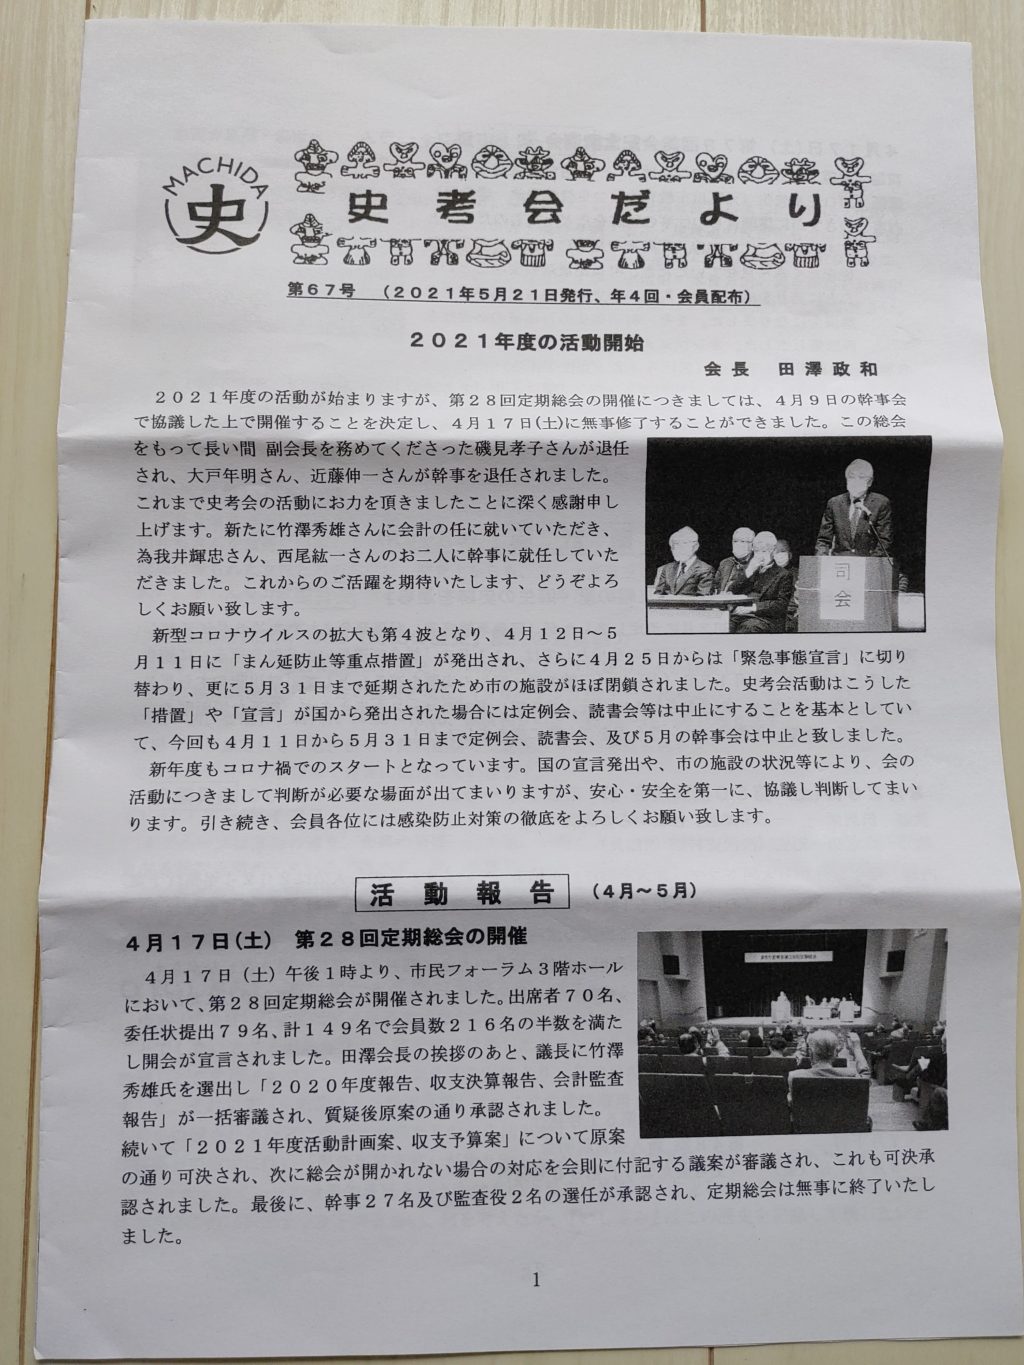 MACHIDA
史
史考会だより
第67号 (2021年5月21日発行、年4回・会員配布)
2021年度の活動開始
会長 田澤政和
2021年度の活動が始まりますが、第28回定期総会の開催につきましては、4月9日の幹事会
で協議した上で開催することを決定し、4月17日(土)に無事修了することができました。この総会
をもって長い間 副会長を務めてくださった磯見孝子さんが退任
され、大戸年明さん、近藤伸一さんが幹事を退任されました。
これまで史考会の活動にお力を頂きましたことに深く感謝申し
上げます。新たに竹澤秀雄さんに会計の任に就いていただき、
為我井輝忠さん、西尾紘一さんのお二人に幹事に就任していた
だきました。これからのご活躍を期待いたします、どうぞよろ
しくお願い致します。
司会
新型コロナウイルスの拡大も第4波となり、4月12日～5
月11日に「まん延防止等重点措置」が発出され、さらに4月25日からは「緊急事態宣言」に切り
替わり、更に5月31日まで延期されたため市の施設がほぼ閉鎖されました。史考会活動はこうした
「措置」や「宣言」が国から発出された場合には定例会、読書会等は中止にすることを基本としてい
て、今回も4月11日から5月31日まで定例会、読書会、及び5月の幹事会は中止と致しました。
新年度もコロナ禍でのスタートとなっています。国の宣言発出や、市の施設の状況等により、会の
活動につきまして判断が必要な場面が出てまいりますが、安心・安全を第一に、協議し判断してまい
ります。引き続き、会員各位には感染防止対策の徹底をよろしくお願い致します。
活動報告 (4月～5月)
4月17日(土) 第28回定期総会の開催
4月17日(土)午後1時より、市民フォーラム3階ホール
において、第28回定期総会が開催されました。出席者70名、
委任状提出79名、計149名で会員数216名の半数を満た
し開会が宣言されました。田澤会長の挨拶のあと、議長に竹澤
秀雄氏を選出し「2020年度報告、収支決算報告、会計監査
報告」が一括審議され、質疑後原案の通り承認されました。
続いて「2021年度活動計画案、収支予算案」について原案
の通り可決され、次に総会が開かれない場合の対応を会則に付記する議案が審議され、これも可決承
認されました。最後に、幹事27名及び監査役2名の選任が承認され、定期総会は無事に終了いたし
ました。
1